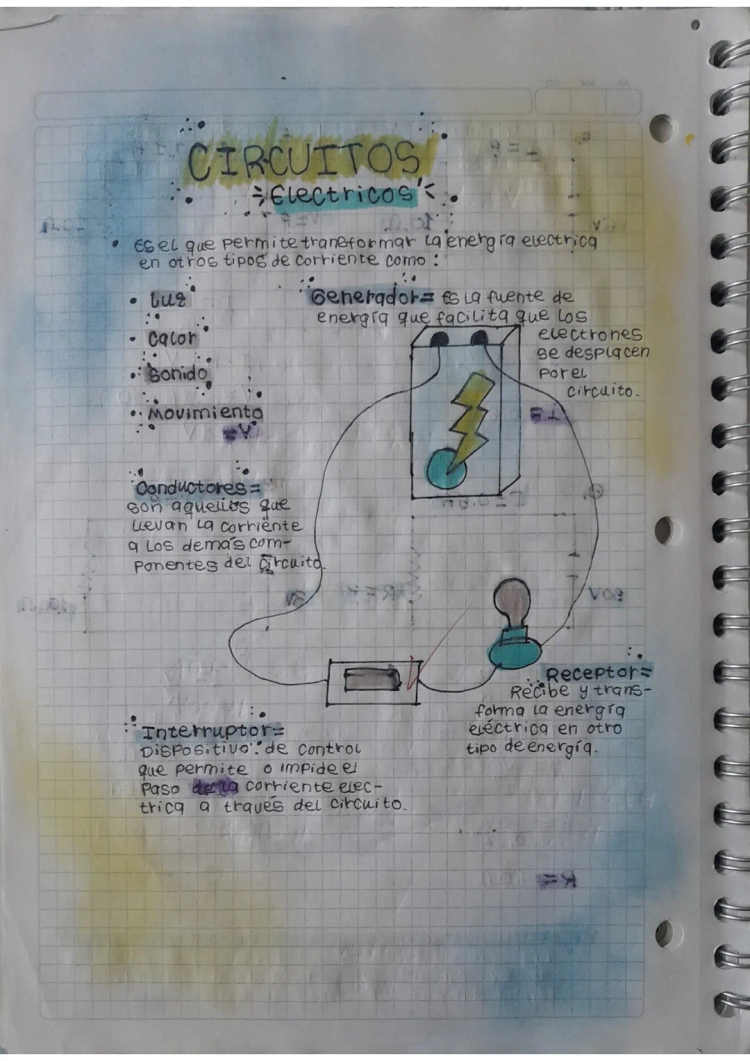 CIRCUITOS
Electricos
• Es el que permite tranformar la energía electrica
en otros tipos de corriente como :
• Luz
• Calor
• Sonido
• Movimiento
Generador= Es la fuente de
energía que facilita que los
electrones
se desplacen
por el
circuito.
Conductores=
son aquellos que
llevan la corriente
a los demás com-
ponentes del circuito.
Receptor=
Recibe y trans-
forma la energía
eléctrica en otro
tipo de energía.
Interruptor=
Dispositivo de control
que permite o impide el
paso de la corriente elec-
trica a través del circuito.